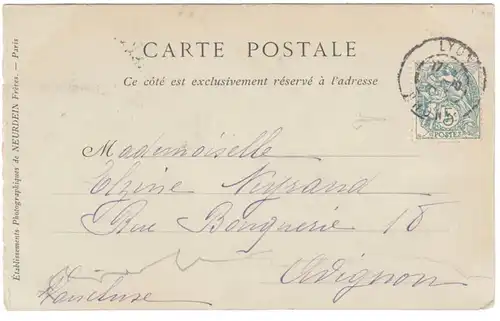 CARTE POSTALE
Ce côté est exclusivement réservé à l'adresse
LYON
RHONE
5
POSTES
Mademoiselle
Neyrand
Rue Banquerie 18
Avignon
Vaucluse
Etablissements Photographiques de NEURDEIN Frères. — Paris